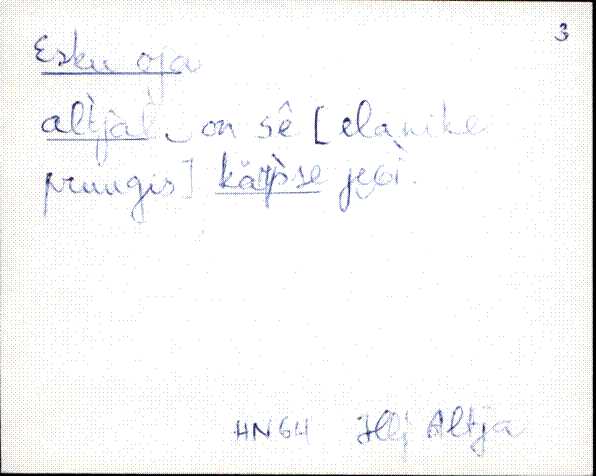 3
Esku oja
altjàl on sê [elanike
prungis] kärpse jegì.
HN64 Hlj Altja